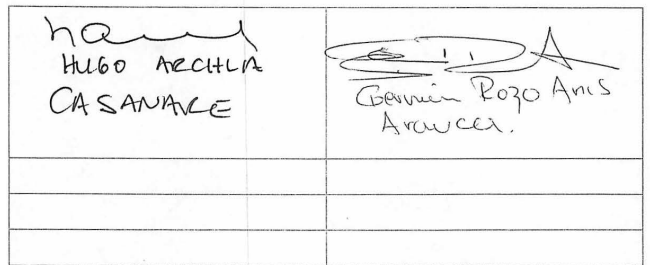 HUGO ARCHILA
CASANARE
Germán Rozo Anis
Arauca.